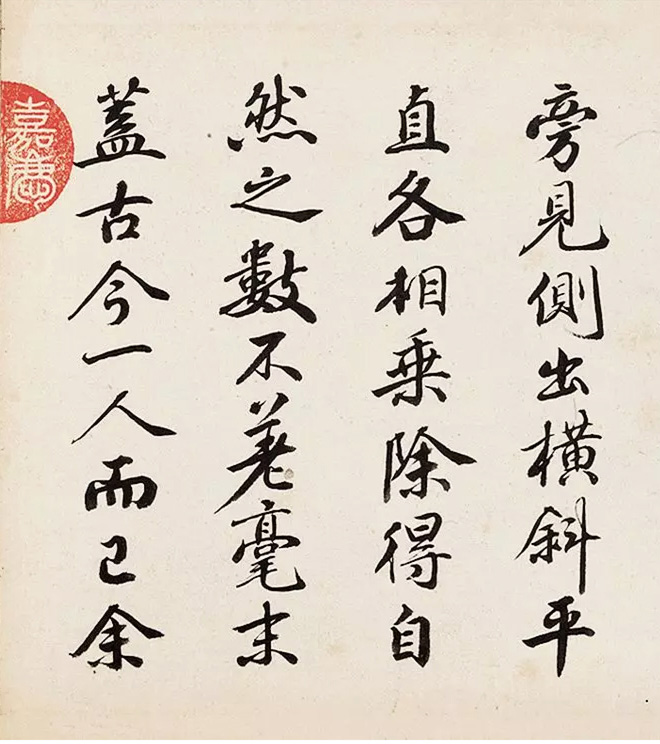 旁見側出橫斜平
直各相乗除得自
然之數不差毫末
蓋古今一人而已余